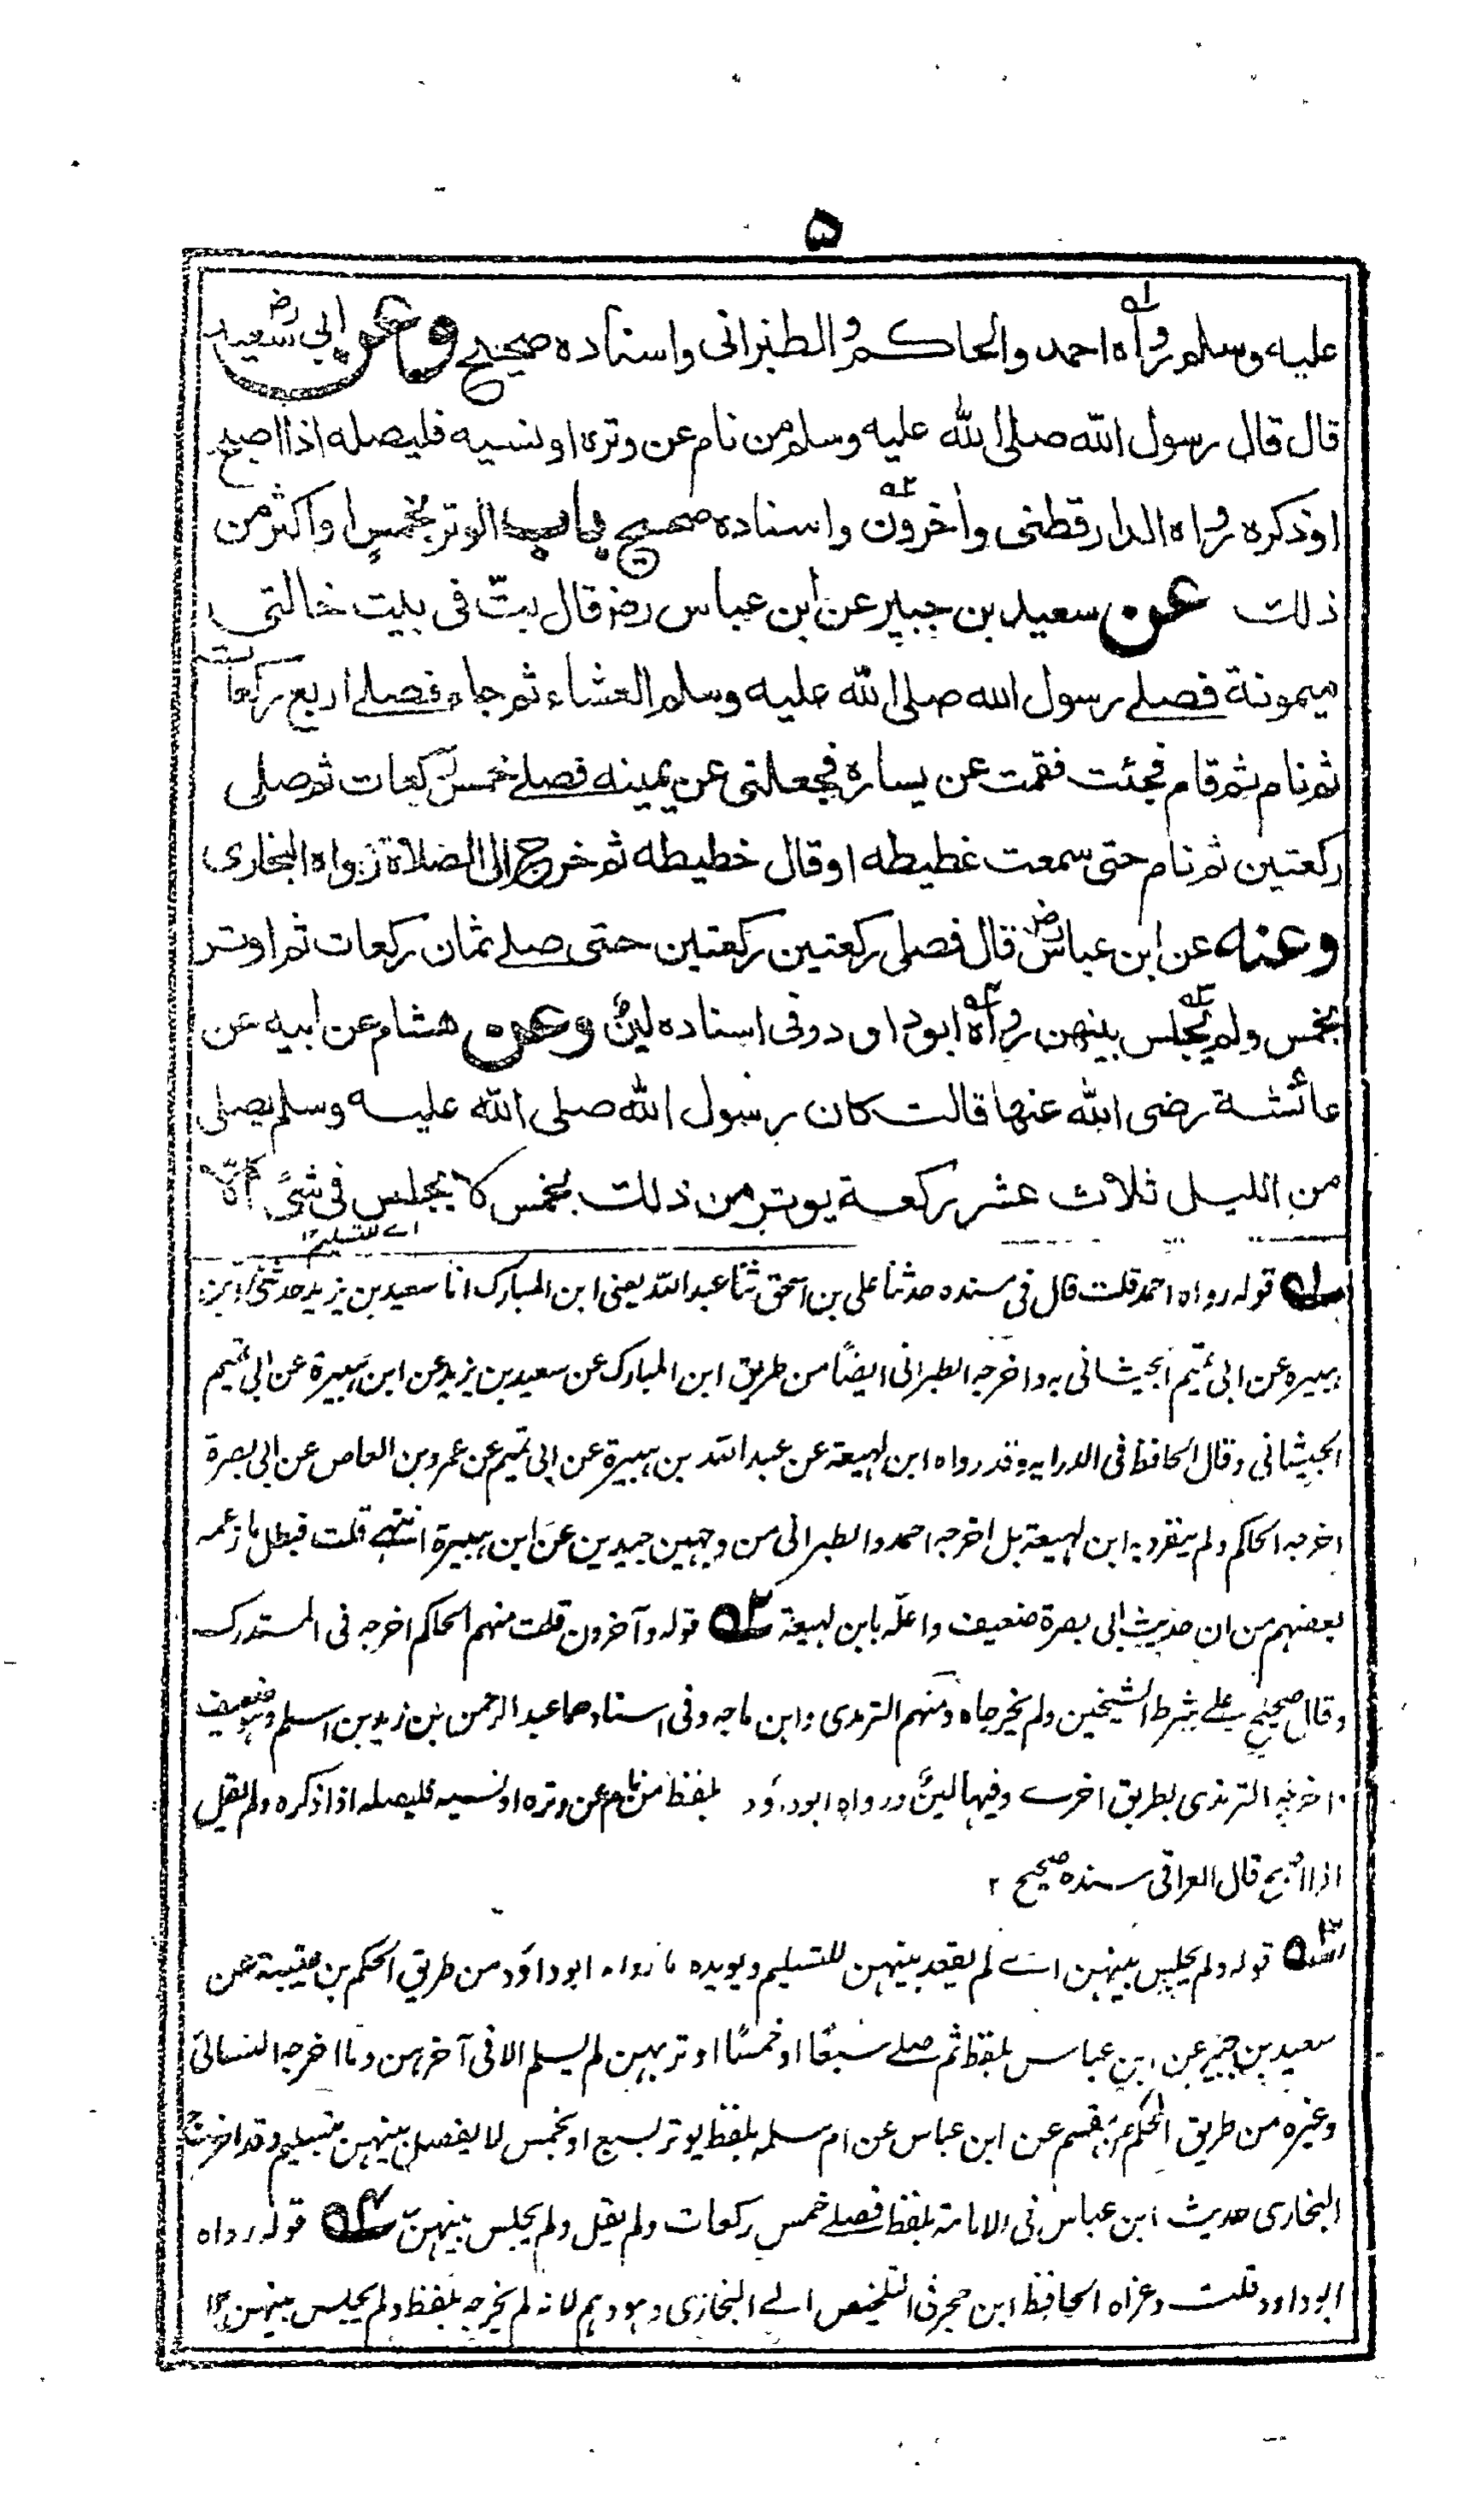 ۵
عليه وسلم رواه احمد والحاكم والطبرانى واسناده صحيح وعن ابي سعيد رض
قال قال رسول الله صلى الله عليه وسلم من نام عن وتره او نسيه فليصله اذا اصبح
او ذكره رواه الدارقطنى وآخرون واسناده صحيح باب الوتر بخمس او اكثر من
ذلك عن سعيد بن جبير عن ابن عباس رض قال بتّ فى بيت خالتى
ميمونة فصلے رسول الله صلى الله عليه وسلم العشاء ثم جاء فصلے اربع ركعات
ثم نام ثم قام فجئت فقمت عن يساره فجعلنى عن يمينه فصلے خمس ركعات ثم صلى
ركعتين ثم نام حتى سمعت غطيطه او قال خطيطه ثم خرج الى الصلاة رواه البخارى
وعنه عن ابن عباس رض قال فصلى ركعتين ركعتين حتى صلے ثمان ركعات ثم اوتر
بخمس ولم يجلس بينهن رواه ابوداود وفى اسناده لين وعن هشام عن ابيه عن
عائشة رضى الله عنها قالت كان رسول الله صلى الله عليه وسلم يصلى
من الليل ثلاث عشر ركعة يوتر من ذلك بخمس لا يجلس فى شئ الّا
اے للتسليم ١٢
ا؎ قوله رواه احمد قلت قال فى مسنده حدثنا على بن اسحق ثنا عبد الله يعنى ابن المبارك انا سعيد بن يزيد حدثنى ابن
هبيره عن ابى تميم الجيشانى به واخرجه الطبرانى ايضًا من طريق ابن المبارك عن سعيد بن يزيد عن ابن هبيرة عن ابى تميم
الجيشانى وقال الحافظ فى الدرايه وقد رواه ابن لهيعة عن عبد الله بن هبيرة عن ابى تميم عن عمرو بن العاص عن ابى بصرة
اخرجه الحاكم ولم ينفرد به ابن لهيعة بل اخرجه احمد والطبرانى من وجهين جيدين عن ابن هبيرة انتهے قلت فبطل ما زعمه
بعضهم من ان حديث ابى بصرة ضعيف واعلّه بابن لهيعة ٢؎ قوله وآخرون قلت منهم الحاكم اخرجه فى المستدرك
وقال صحيح على شرط الشيخين ولم يخرجاه ومنهم الترمذى وابن ماجه وفى اسنادهما عبد الرحمن بن زيد بن اسلم وهو ضعيف
واخرجه الترمذى بطريق اخرے وفيها لين ورواه ابوداؤد بلفظ من نام عن وتره او نسيه فليصله اذا ذكره ولم يقل
اذا اصبح قال العراقى سنده صحيح ١٢
٣؎ قوله ولم يجلس بينهن اے لم يقعد بينهن للتسليم ويويده ما رواه ابوداؤد من طريق الحكم بن عتيبة عن
سعيد بن جبير عن ابن عباس بلفظ ثم صلے سبعًا او خمسًا اوتر بهن لم يسلم الا فى آخرهن وما اخرجه النسائى
وغيره من طريق الحكم عن مقسم عن ابن عباس عن ام سلمه بلفظ يوتر بسبع او بخمس لا يفصل بينهن بتسليم وقد اخرج
البخارى حديث ابن عباس فى الامامة بلفظ فصلے خمس ركعات ولم يقل ولم يجلس بينهنّ ٤؎ قوله رواه
ابوداود قلت وعزاه الحافظ ابن حجر فى التلخيص الے البخارى وهو وهم لانه لم يخرجه بلفظ ولم يجلس بينهن ١٢